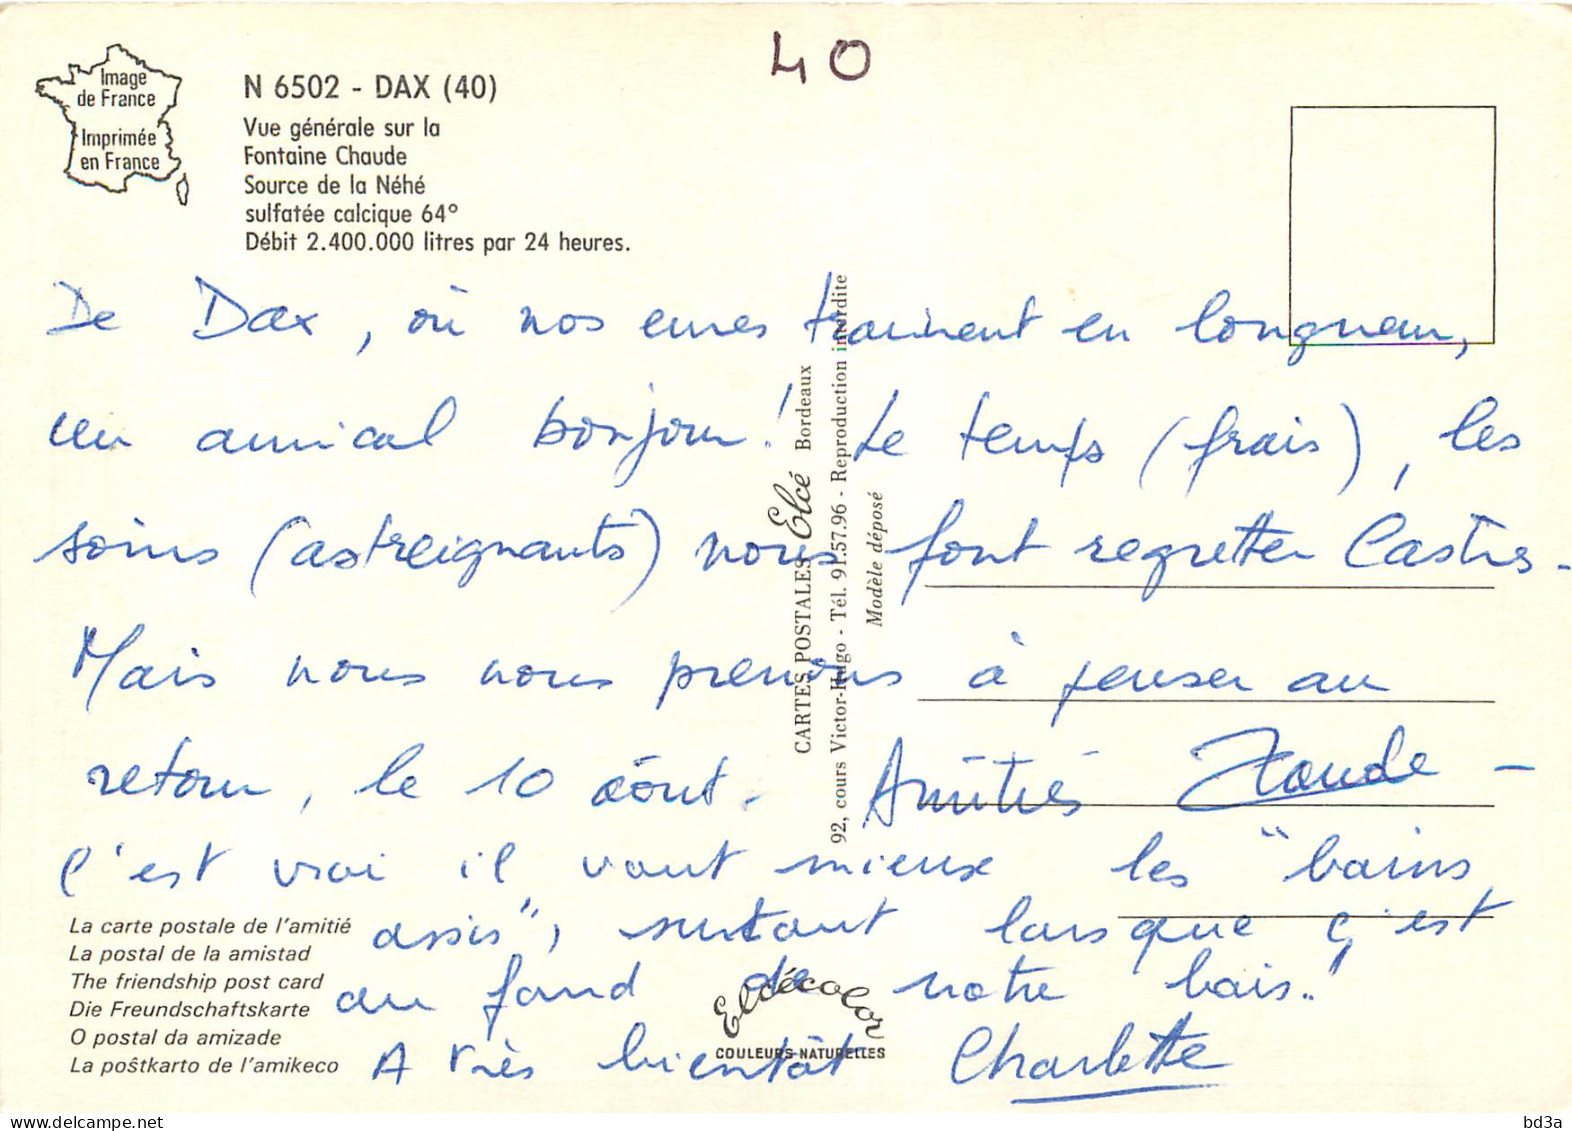 40
Image
de France
Imprimée
en France
N 6502 - DAX (40)
Vue générale sur la
Fontaine Chaude
Source de la Néhé
sulfatée calcique 64°
Débit 2.400.000 litres par 24 heures.
De Dax, où nos cures traînent en longueur,
un amical bonjour! Le temps (frais), les
soins (astreignants) nous font regretter Castres-
Mais nous nous prenons à penser au
retour, le 10 août. Amitiés
C'est vrai il vaut mieux les "bains
assis", surtout lorsque c'est
au fond de notre bais!
A très bientôt Charlotte
CARTES POSTALES Elcé Bordeaux
92, cours Victor-Hugo - Tél. 91.57.96 - Reproduction interdite
Modèle déposé
La carte postale de l'amitié
La postal de la amistad
The friendship post card
Die Freundschaftskarte
O postal da amizade
La poŝtkarto de l'amikeco
Eldécolor
COULEURS NATURELLES
bd3a